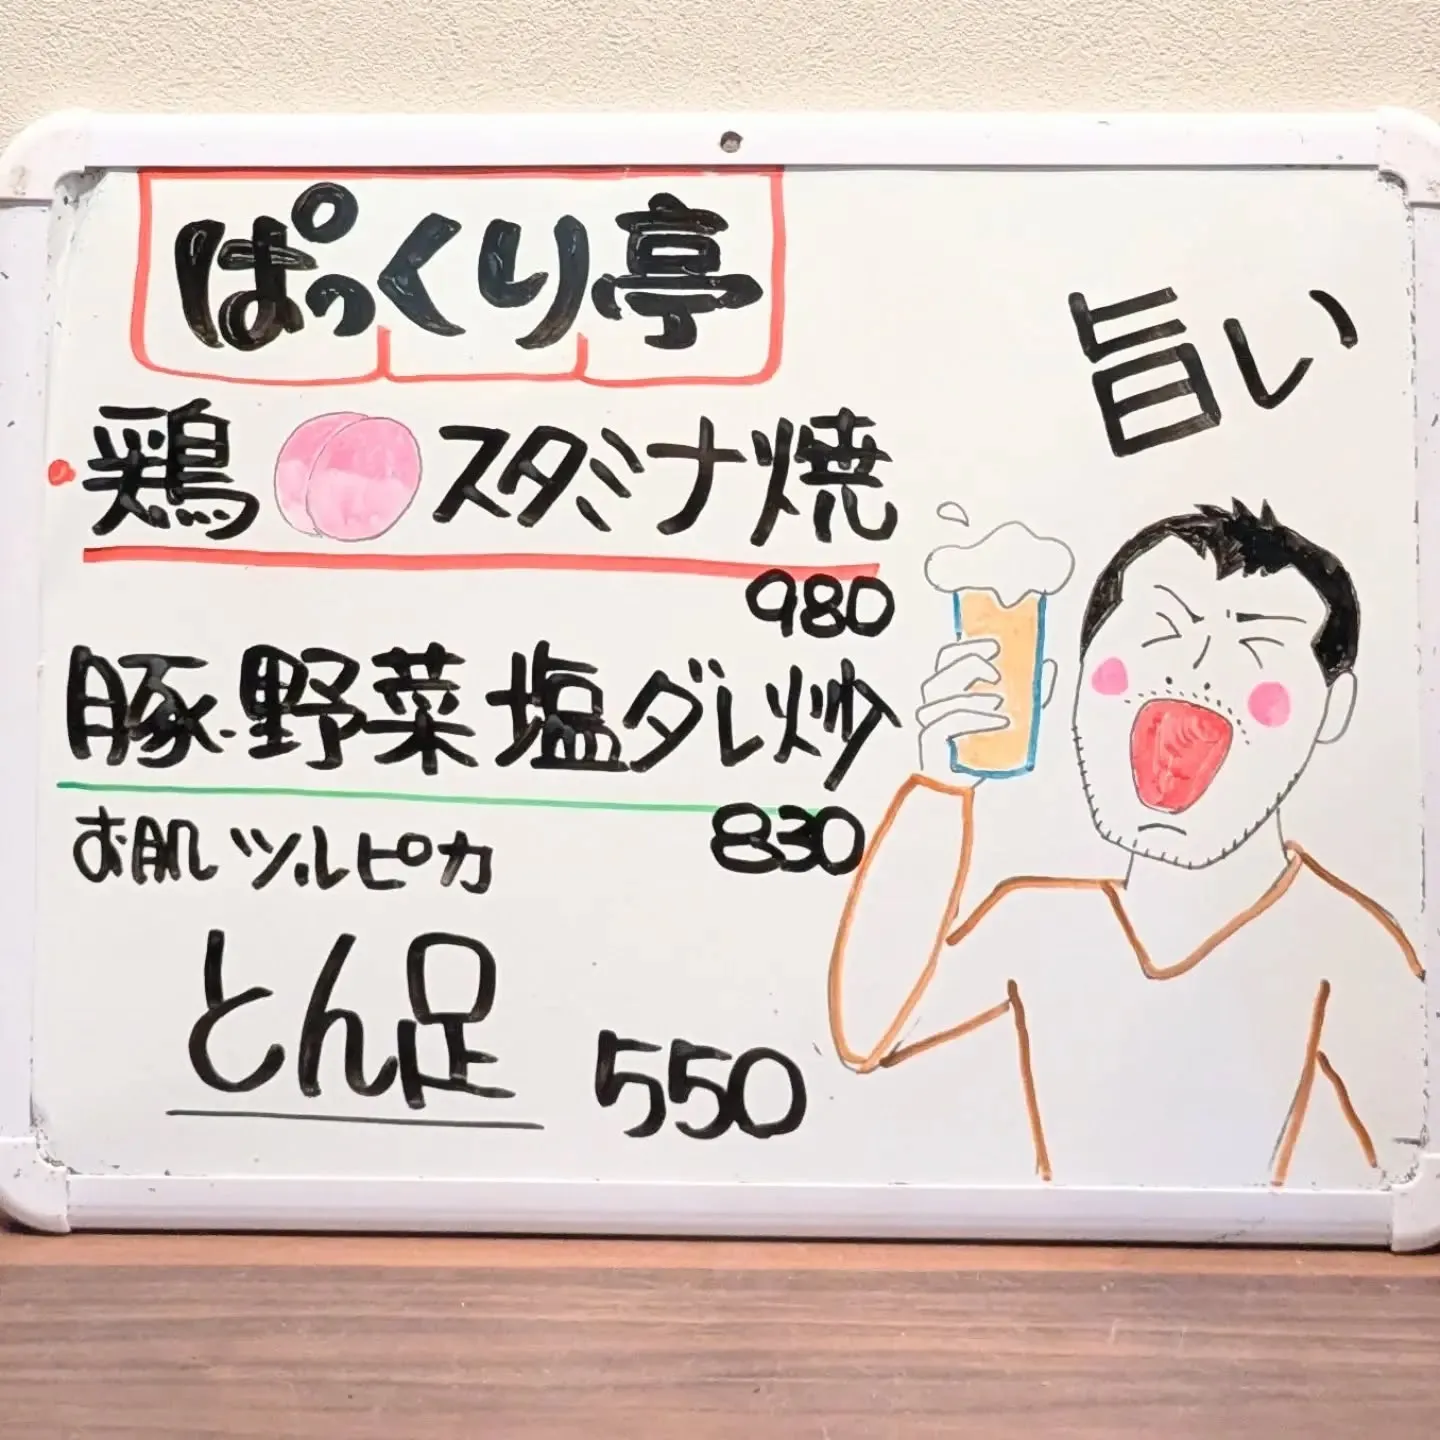 ぱっくり亭
旨い
鶏スタミナ焼
980
豚・野菜塩ダレ炒
830
お肌ツルピカ
とん足
550